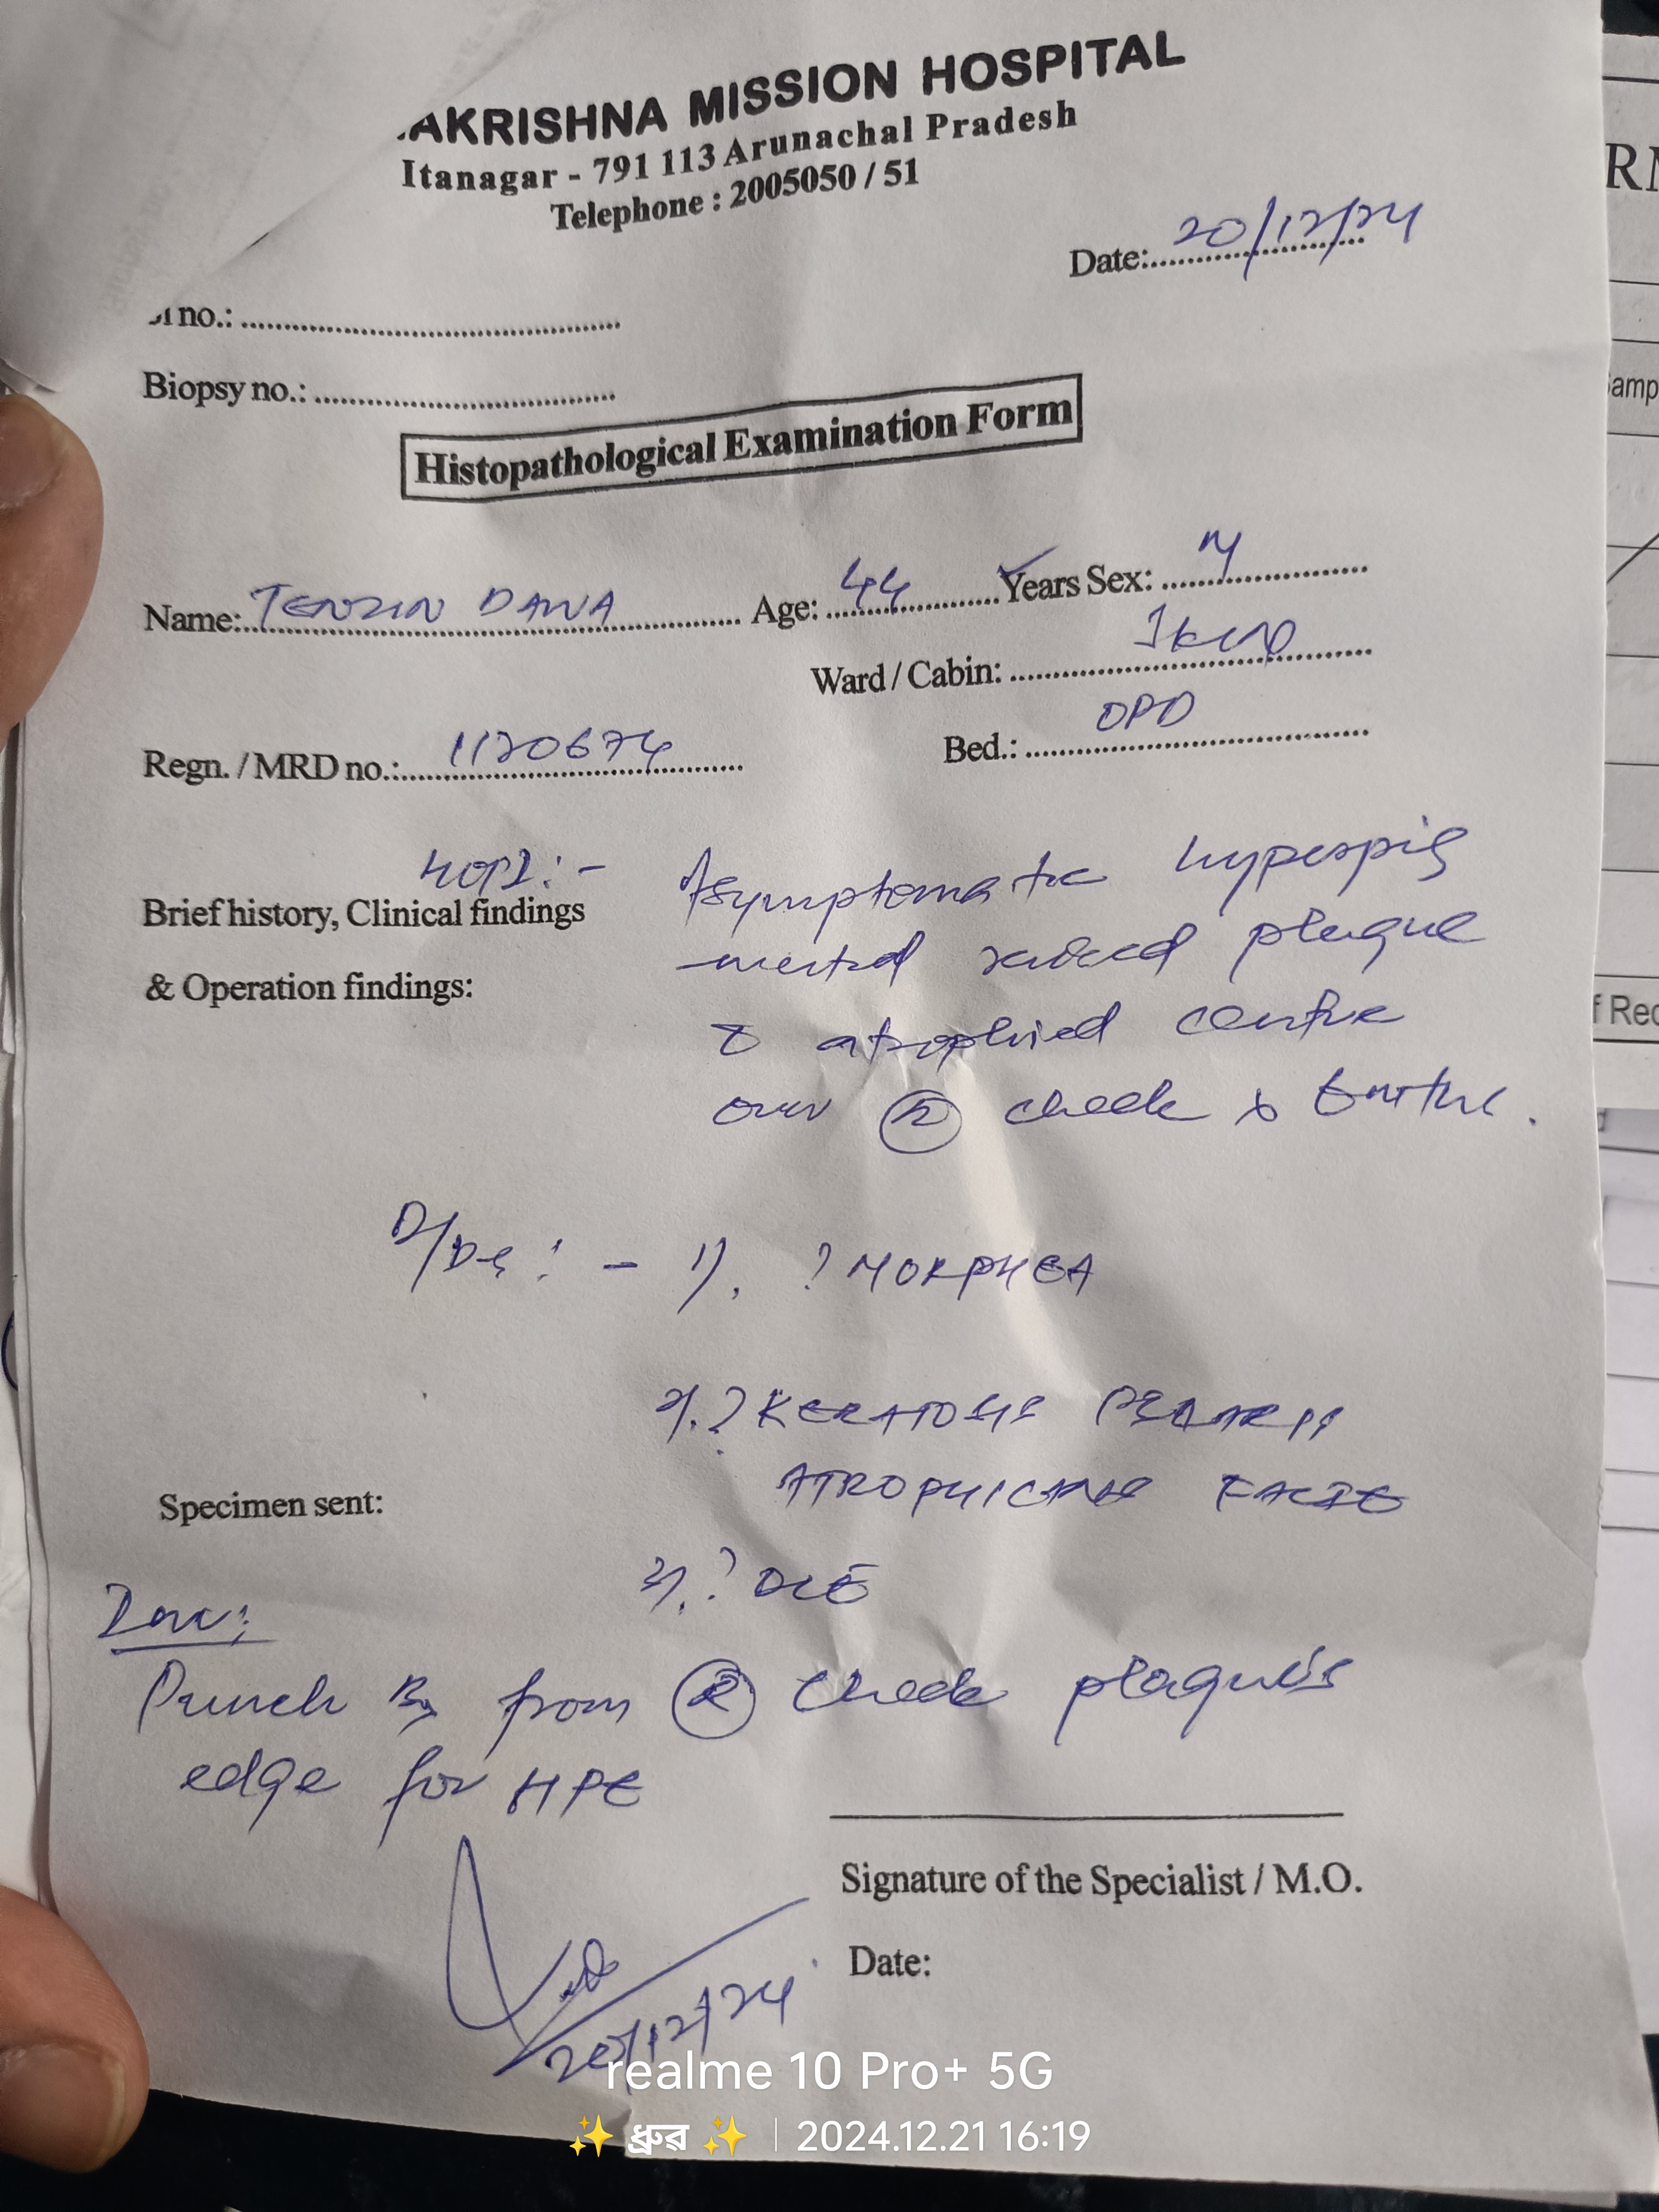 AKRISHNA MISSION HOSPITAL
Itanagar - 791 113 Arunachal Pradesh
Telephone : 2005050 / 51
Date: 20/12/24
no.:
Biopsy no.:
Histopathological Examination Form
Name: TENZIN DAWA Age: 44 Years Sex: M
Ward / Cabin:
Regn. / MRD no.: 1120674 Bed.: OPD
HOPI:- Asymptomatic hyperpig
Brief history, Clinical findings
-mented raised plaque
& Operation findings:
c̄ atrophied centre
over Ⓡ cheek
D/Ds: - 1). ? MORPHEA
2). ? KERATOSIS PILARIS
ATROPHICANS FACIE
Specimen sent:
3). ? DLE
Punch Bx from Ⓡ cheek plaque's
edge for HPE
Signature of the Specialist / M.O.
20/12/24
Date:
realme 10 Pro+ 5G
✨ ধ্রুৱ ✨ | 2024.12.21 16:19
RM
amp
f Rec